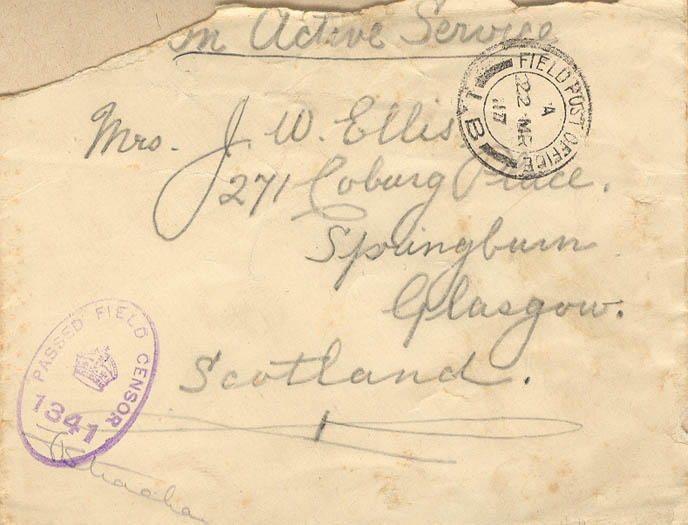 On Active Service
FIELD POST OFFICE
T.B
A
22 MR
17
Mrs. J. W. Ellis
271 Coburg Place.
Springburn
Glasgow.
Scotland.
PASSED FIELD CENSOR
1341